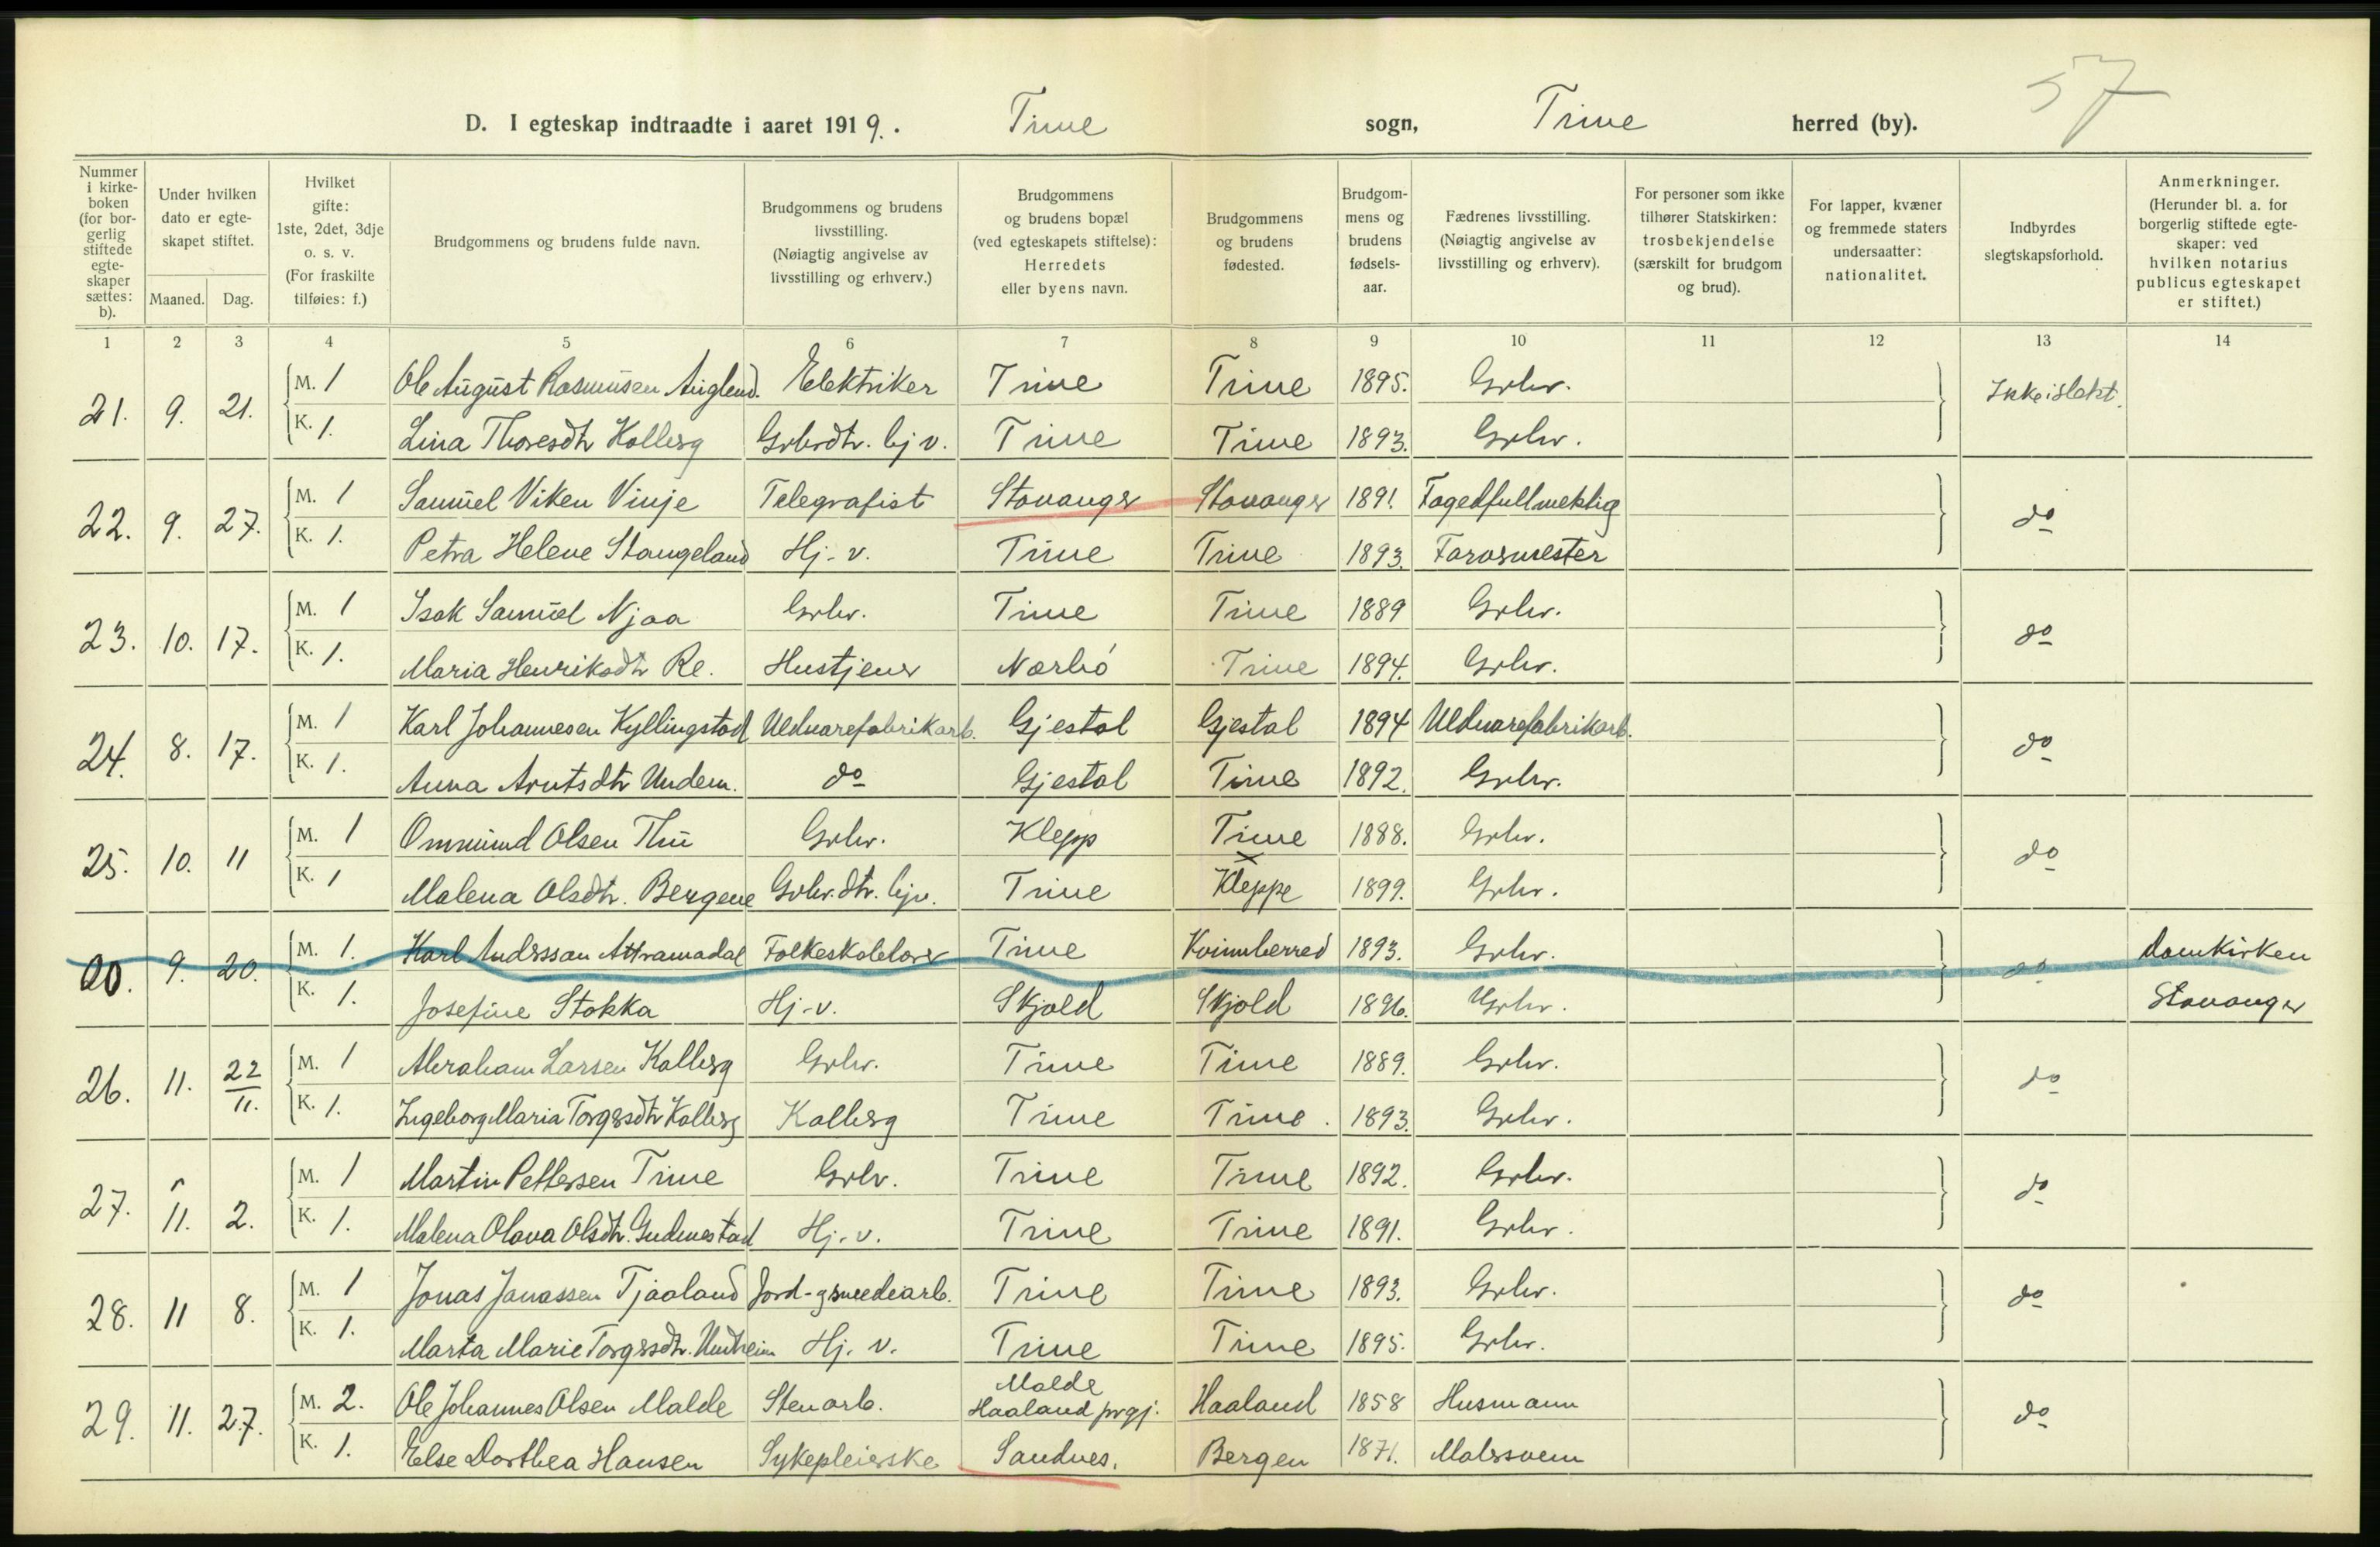 57
D. I egteskap indtraadte i aaret 1919. Time sogn, Time herred (by).
Nummer i kirkeboken (for borgerlig stiftede egteskaper sættes: b).
Under hvilken dato er egteskapet stiftet.
Maaned. Dag.
Hvilket gifte: 1ste, 2det, 3dje o. s. v. (For fraskilte tilføies: f.)
Brudgommens og brudens fulde navn.
Brudgommens og brudens livsstilling. (Nøiagtig angivelse av livsstilling og erhverv.)
Brudgommens og brudens bopæl (ved egteskapets stiftelse): Herredets eller byens navn.
Brudgommens og brudens fødested.
Brudgommens og brudens fødselsaar.
Fædrenes livsstilling. (Nøiagtig angivelse av livsstilling og erhverv).
For personer som ikke tilhører Statskirken: trosbekjendelse (særskilt for brudgom og brud).
For lapper, kvæner og fremmede staters undersaatter: nationalitet.
Indbyrdes slegtskapsforhold.
Anmerkninger. (Herunder bl. a. for borgerlig stiftede egteskaper: ved hvilken notarius publicus egteskapet er stiftet.)
1 2 3 4 5 6 7 8 9 10 11 12 13 14
21. 9. 21. M. 1 Ole August Rasmusen Auglend. Elektriker Time Time 1895. Grbr. Ikke i slekt.
K. 1. Lina Thoresdtr Kalberg Grbrdtr. hj v. Time Time 1893. Grbr.
22. 9. 27. M. 1 Samuel Viken Vinje Telegrafist Stavanger Stavanger 1891. Fogedfullmektig do
K. 1. Petra Helene Stangeland Hj-v. Time Time 1893. Farvermester
23. 10. 17. M. 1 Isak Samuel Njaa Grbr. Time Time 1889 Grbr. do
K. 1. Maria Henriksdtr Re. Hustjener Nærbö Time 1894. Grbr.
24. 8. 17. M. 1 Karl Johannesen Kyllingstad Uldvarefabrikarb. Gjestal Gjestal 1894 Uldvarefabrikarb. do
K. 1. Anna Arntsdtr Undem. do Gjestal Time 1892. Grbr.
25. 10. 11 M. 1 Ommund Olsen Thu Grbr. Klepp Time 1888. Grbr. do
K. 1 Malena Olsdtr. Bergene Grbr.dtr. hjv. Time × Kleppe 1899. Grbr.
20. 9. 20. M. 1. Karl Anderssan Attramadal Folkeskolelærer Time Kvinnherred 1893. Grbr. do Domkirken
K. 1. Josefine Stakka Hj-v. Skjold Skjold 1896. Grbr. Stavanger
26. 11. 22/11. M. 1 Abraham Larsen Kalberg Grbr. Time Time 1889. Grbr. do
K. 1. Ingeborg Maria Torgersdtr Kalberg Kalberg Time Time. 1893. Grbr.
27. 11. 2. M. 1 Martin Pettersen Time Grbr. Time Time 1892. Grbr. do
K. 1. Malena Olava Olsdtr. Gudmestad Hj.v. Time Time 1891. Grbr.
28. 11 8. M. 1 Jonas Janassen Tjaaland Jord-g smediarb. Time Time 1893. Grbr. do
K. 1. Marta Marie Torgersdtr. Undheim Hj. v. Time Time 1895. Grbr.
29. 11. 27. M. 2. Ole Johannes Olsen Malde Stenarb. Malde Haaland prgj. Haaland 1858 Husmann do
K. 1. Else Dorthea Hansen Sykepleierske Sandnes. Bergen 1871. Malersvenn